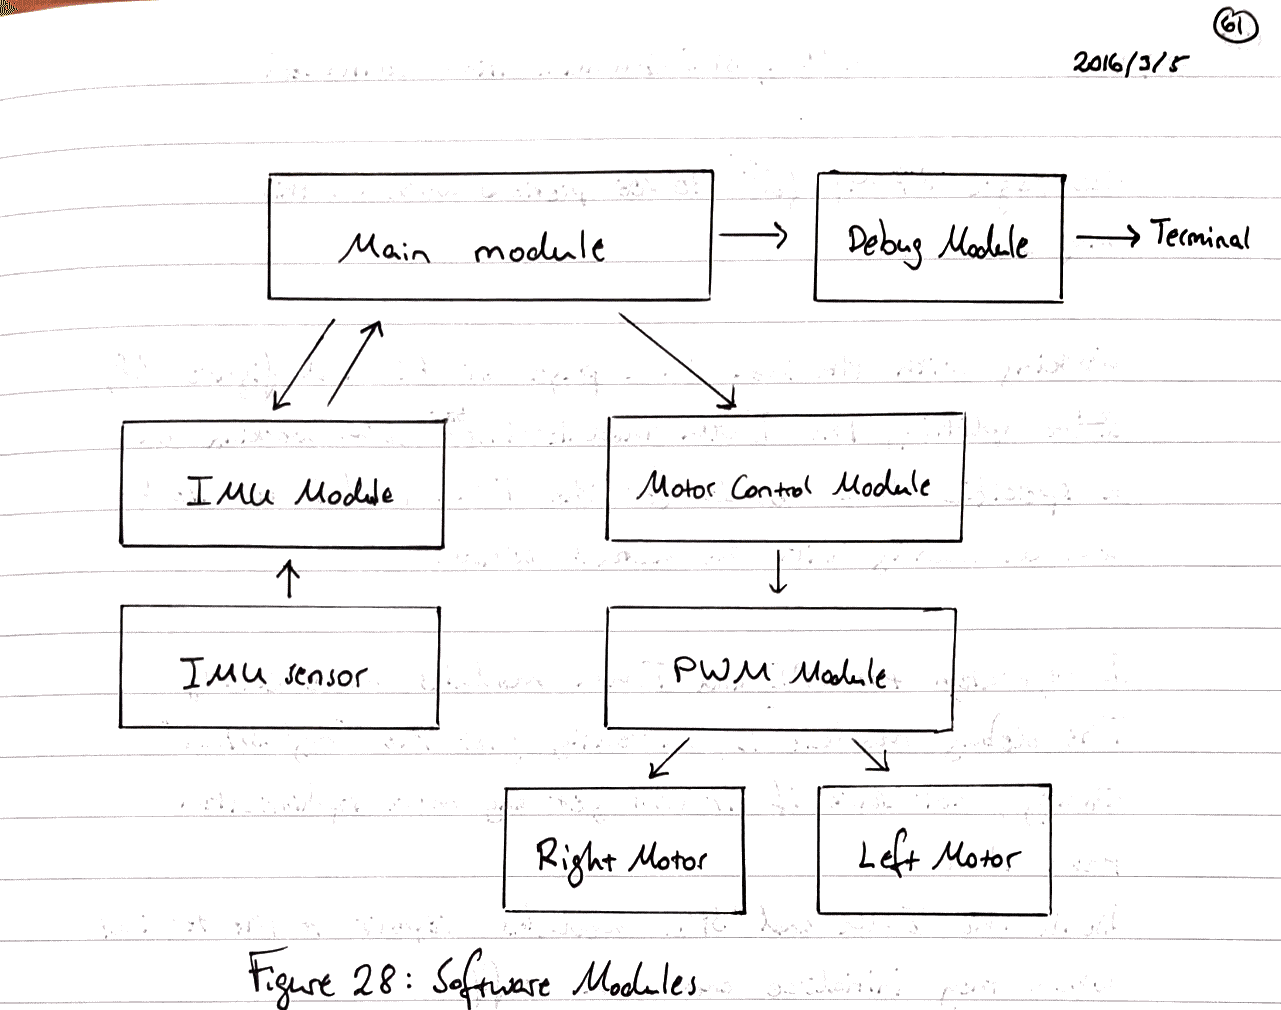 61
2016/3/5
Main module
Debug Module
Terminal
IMU Module
Motor Control Module
IMU sensor
PWM Module
Right Motor
Left Motor
Figure 28: Software Modules